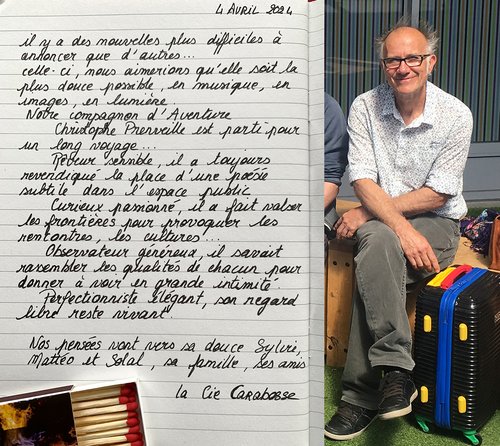 4 AVRIL 2024
il y a des nouvelles plus difficiles à
annoncer que d'autres...
celle-ci, nous aimerions qu'elle soit la
plus douce possible, en musique, en
images, en lumière.
Notre compagnon d'Aventure
Christophe Prenveille est parti pour
un long voyage...
Rêveur sensible, il a toujours
revendiqué la place d'une poésie
subtile dans l'espace public
Curieux passionné, il a fait valser
les frontières pour provoquer les
rencontres, les cultures...
Observateur généreux, il savait
rassembler les qualités de chacun pour
donner à voir en grande intimité.
Perfectionniste élégant, son regard
libre reste vivant
Nos pensées vont vers sa douce Sylvie,
Mattéo et Solal, sa famille, ses amis
la Cie CARABOSSE